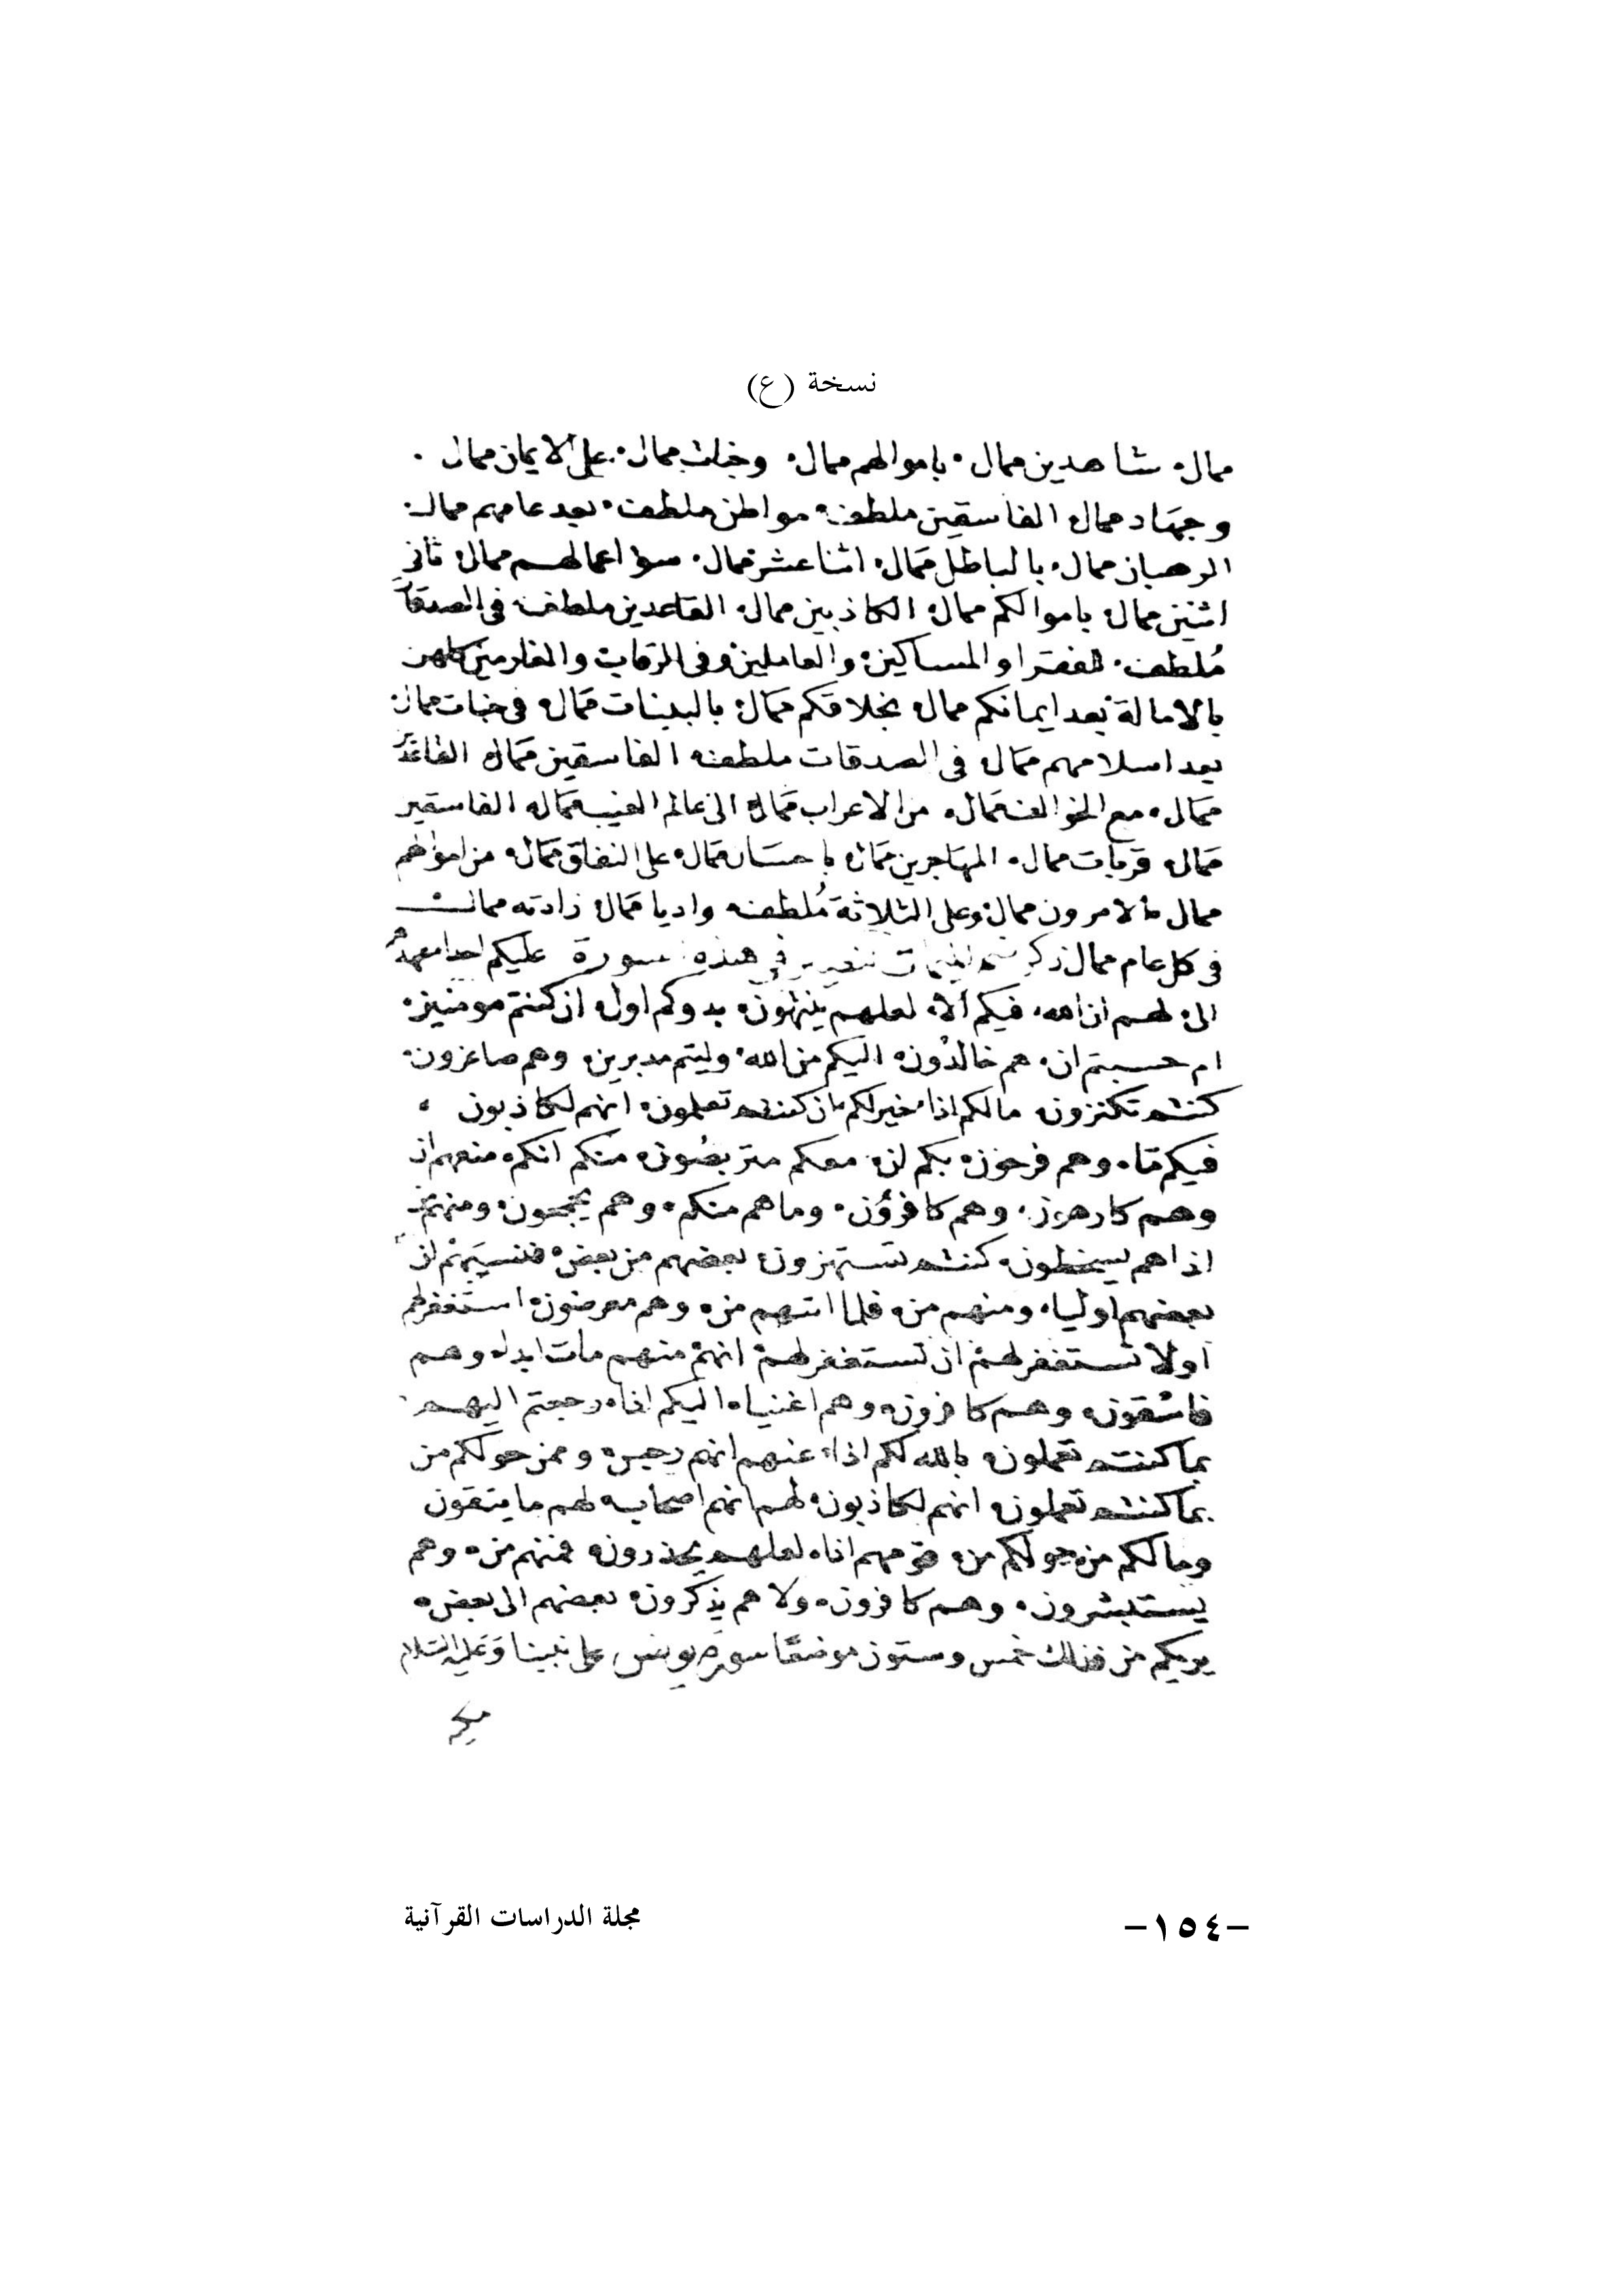 نسخة (ع)
ممال. شاهدين ممال. باموالهم ممال. وجنات ممال. على الايمان ممال.
وجهاد ممال الفاسقين ملطفه مواطن ملطفه. بعد عامهم ممال.
الرهبان ممال. بالباطل ممال. اثنا عشر ممال. سوا اعمالهم ممال ثاني
اثنين ممال باموالكم ممال الكاذبين ممال القاعدين ملطفه في الصدقات
ملطفه. للفقرا والمساكين والعاملين وفي الرقاب والغارمين كلهن
بالامالة بعد ايمانكم ممال بخلاقكم ممال بالبينات ممال في جنات ممال
بعد اسلامهم ممال في الصدقات ملطفه الفاسقين ممال
ممال. مع الخوالف ممال. من الاعراب ممال الى عالم الغيب ممال الفاسقين
ممال قربات ممال. المهاجرين ممال باحسان ممال على النفاق ممال من اموالهم
ممال الامرون ممال وعلى الثلاثة ملطفه واديا ممال زادته ممال
في كل عام ممال ذكر في هذه سورة عليكم احدا
الى لهم ان الله. فيكم الا لعلهم ينتهون بدوكم اول ان كنتم مومنين.
ام حسبتم ان. هم خالدون اليكم من الله. وليتم مدبرين وهم صاغرون.
كنتم تكنزون مالكم اذا خير لكم ان كنتم تعلمون انهم لكاذبون
فيكم ما. وهم فرحون بكم ان معكم متربصون منكم انكم منعهم ان
وهم كارهون. وهم كافرون. وما هم منكم. وهم يجمحون ومنهم من
اذا هم يسخطون. كنتم تستهزون بعضهم من بعض فنسيهم ان
بعضهم اوليا. ومنهم من فلما اتيهم من وهم معرضون استغفر لهم
اولا تستغفر لهم ان تستغفر لهم انهم منهم مات ابدا وهم
فاسقون وهم كافرون وهم اغنيا اليكم اذا رجعتم اليهم
بما كنتم تعملون بالله لكم اذا عنهم انهم رجس وممن حولكم من
بما كنتم تعملون انهم لكاذبون لهم انهم اصحاب لهم ما يتقون
وما لكم من حولكم من قومهم اذا لعلهم يحذرون فمنهم من وهم
يستبشرون. وهم كافرون. ولا هم يذكرون بعضهم الى بعض
يريكم من فذلك خمس وستون موضعا سورة يونس على نبينا وعليه السلام
مجلة الدراسات القرآنية
-١٥٤-